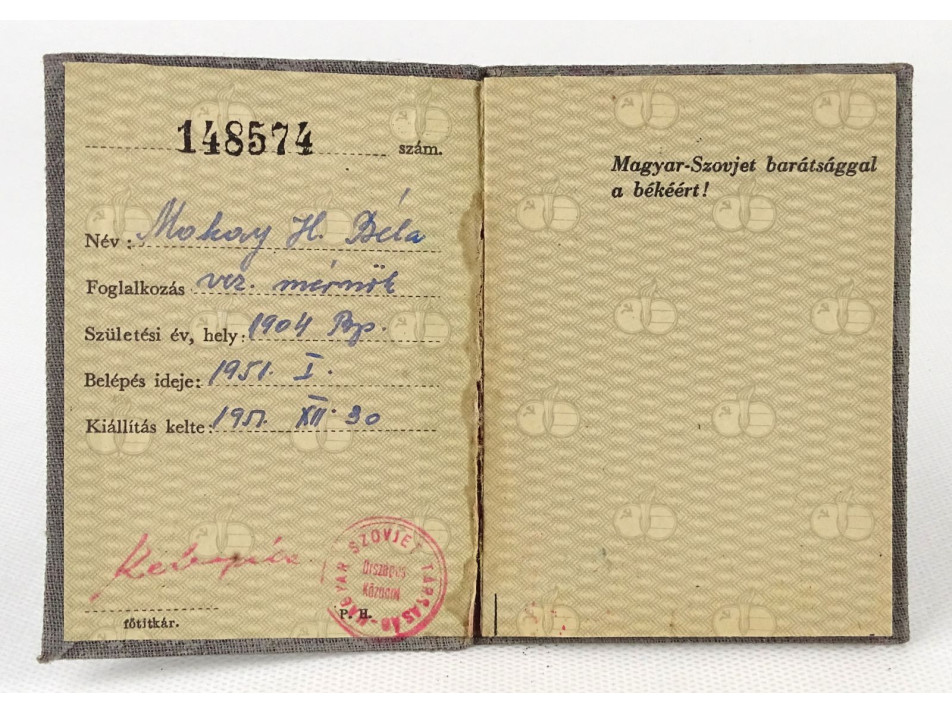 148574 szám.
Név: Mokay H. Béla
Foglalkozás vez. mérnök
Születési év, hely: 1904 Bp.
Belépés ideje: 1951. I.
Kiállítás kelte: 1951. XII. 30
MAGYAR SZOVJET TÁRSASÁG
Országos
Központ
P. H.
főtitkár.
Magyar-Szovjet barátsággal
a békéért!